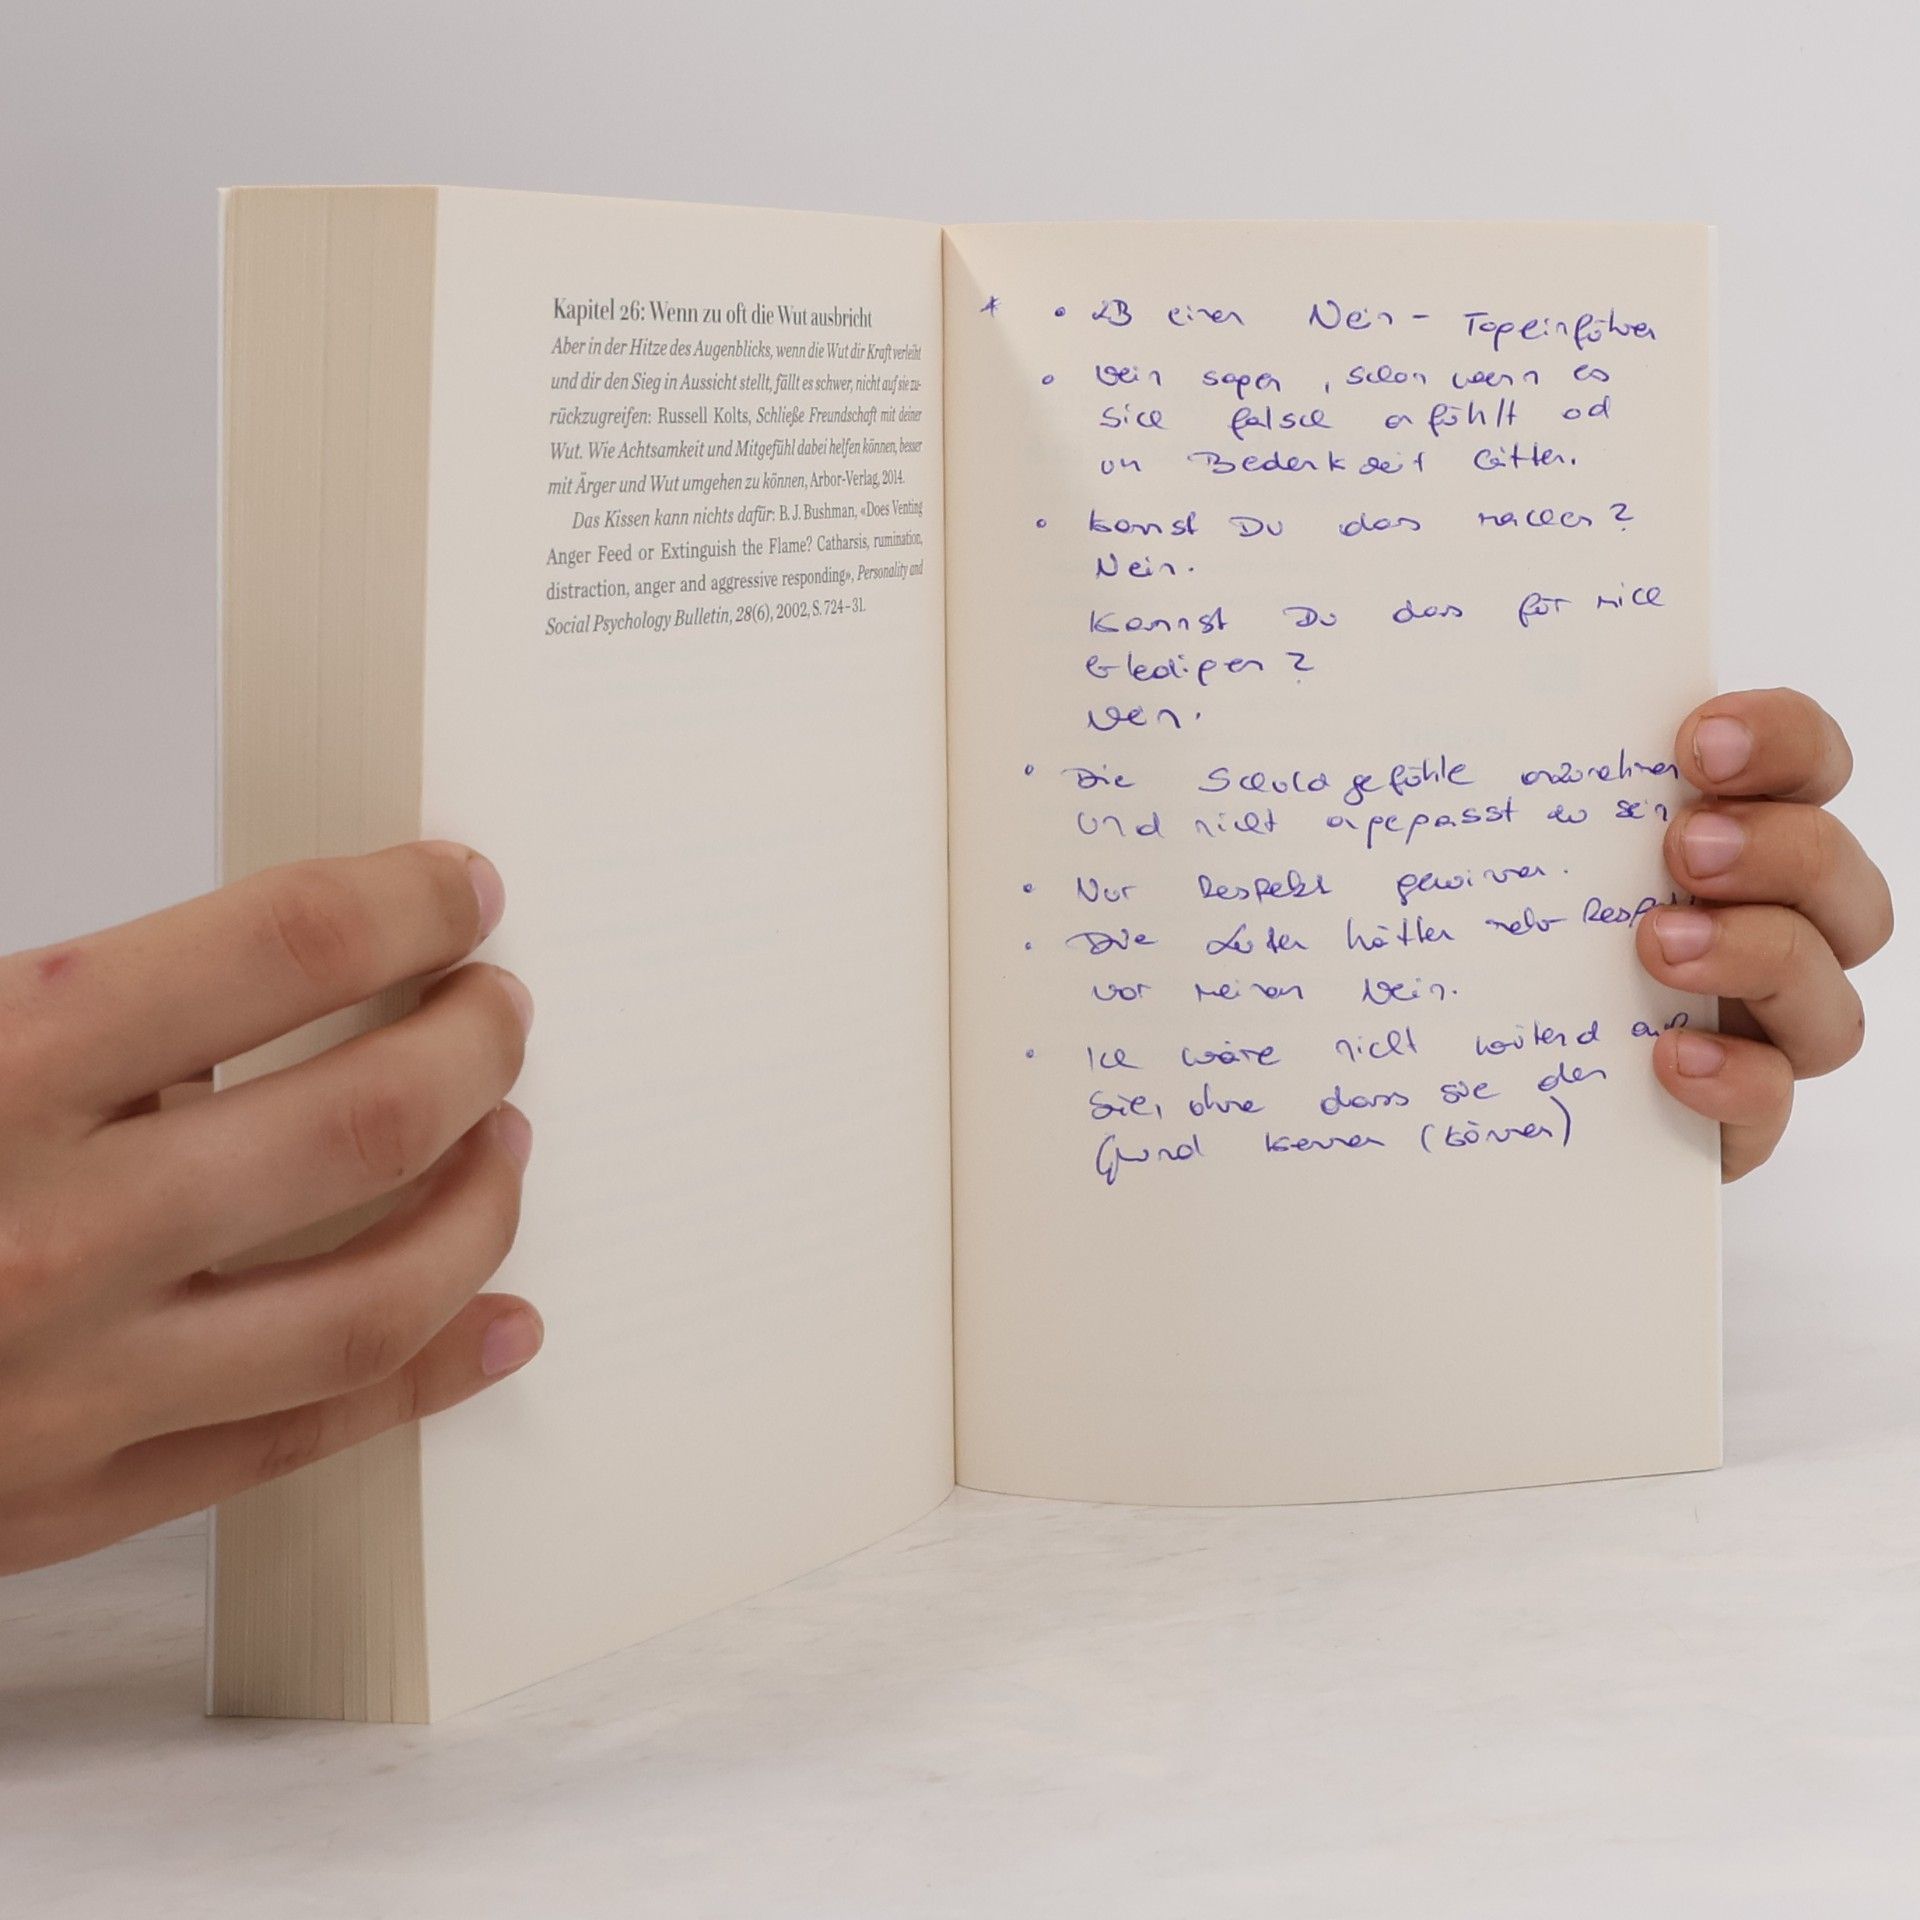 Kapitel 26: Wenn zu oft die Wut ausbricht
Aber in der Hitze des Augenblicks, wenn die Wut dir Kraft verleiht
und dir den Sieg in Aussicht stellt, fällt es schwer, nicht auf sie zu-
rückzugreifen: Russell Kolts, Schließe Freundschaft mit deiner
Wut. Wie Achtsamkeit und Mitgefühl dabei helfen können, besser
mit Ärger und Wut umgehen zu können, Arbor-Verlag, 2014.
Das Kissen kann nichts dafür: B. J. Bushman, «Does Venting
Anger Feed or Extinguish the Flame? Catharsis, rumination,
distraction, anger and aggressive responding», Personality and
Social Psychology Bulletin, 28(6), 2002, S. 724–31.
* • ZB einen Nein - Tag einführen
• Nein sagen, schon wenn es
sich falsch anfühlt od
um Bedenkzeit bitten.
• Kannst Du das machen?
Nein.
Kannst Du das für mich
erledigen?
Nein.
• Die Schuldgefühle anzunehmen
und nicht angepasst zu sein
• Nur Respekt gewinnen.
• Die Leute hätten mehr
vor meinem Nein.
• Ich wäre nicht wütend auf
Sie, ohne dass sie den
Grund kennen (können)